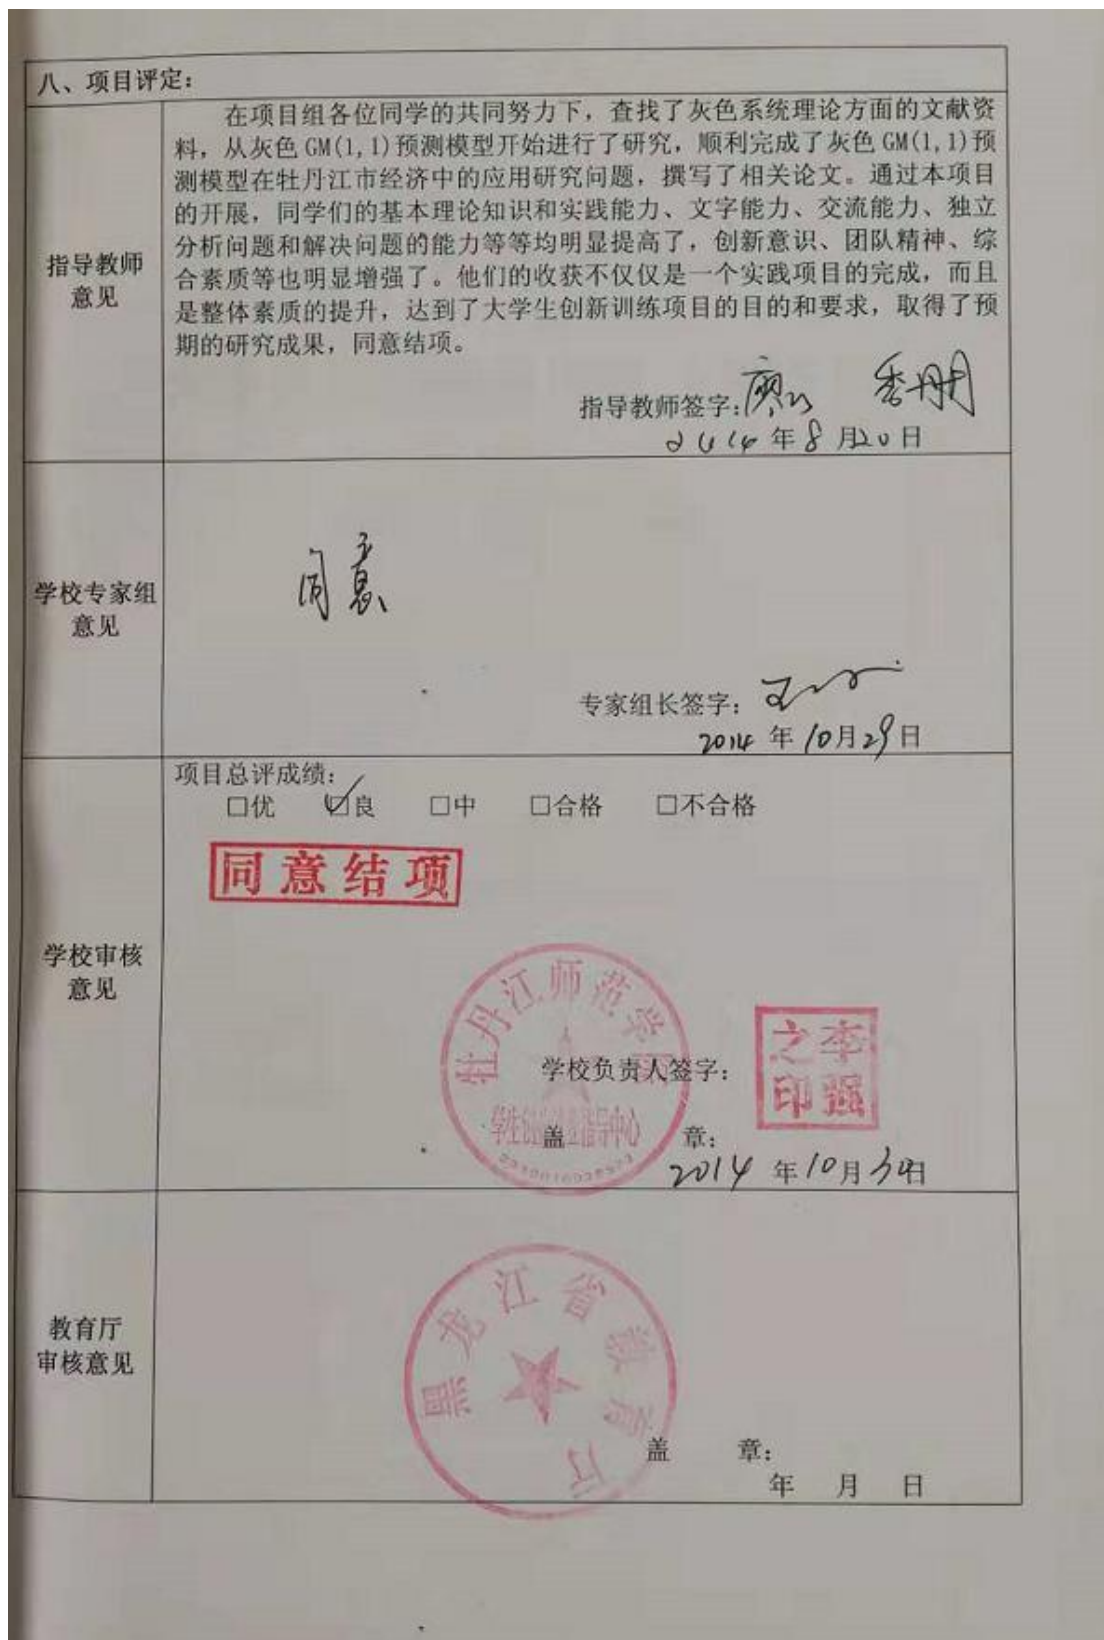 八、项目评定：
指导教师
意见
在项目组各位同学的共同努力下，查找了灰色系统理论方面的文献资
料，从灰色 GM(1,1)预测模型开始进行了研究，顺利完成了灰色 GM(1,1)预
测模型在牡丹江市经济中的应用研究问题，撰写了相关论文。通过本项目
的开展，同学们的基本理论知识和实践能力、文字能力、交流能力、独立
分析问题和解决问题的能力等等均明显提高了，创新意识、团队精神、综
合素质等也明显增强了。他们的收获不仅仅是一个实践项目的完成，而且
是整体素质的提升，达到了大学生创新训练项目的目的和要求，取得了预
期的研究成果，同意结项。
指导教师签字：廖
2014 年 8 月 20 日
学校专家组
意见
同意
专家组长签字：
2014 年 10 月 29 日
学校审核
意见
项目总评成绩：
□优 □良 □中 □合格 □不合格
同意结项
牡丹江师范学院
学校负责人签字：
李强之印
盖 章：
2014 年 10 月 30 日
教育厅
审核意见
黑龙江省教育厅
盖 章：
年 月 日